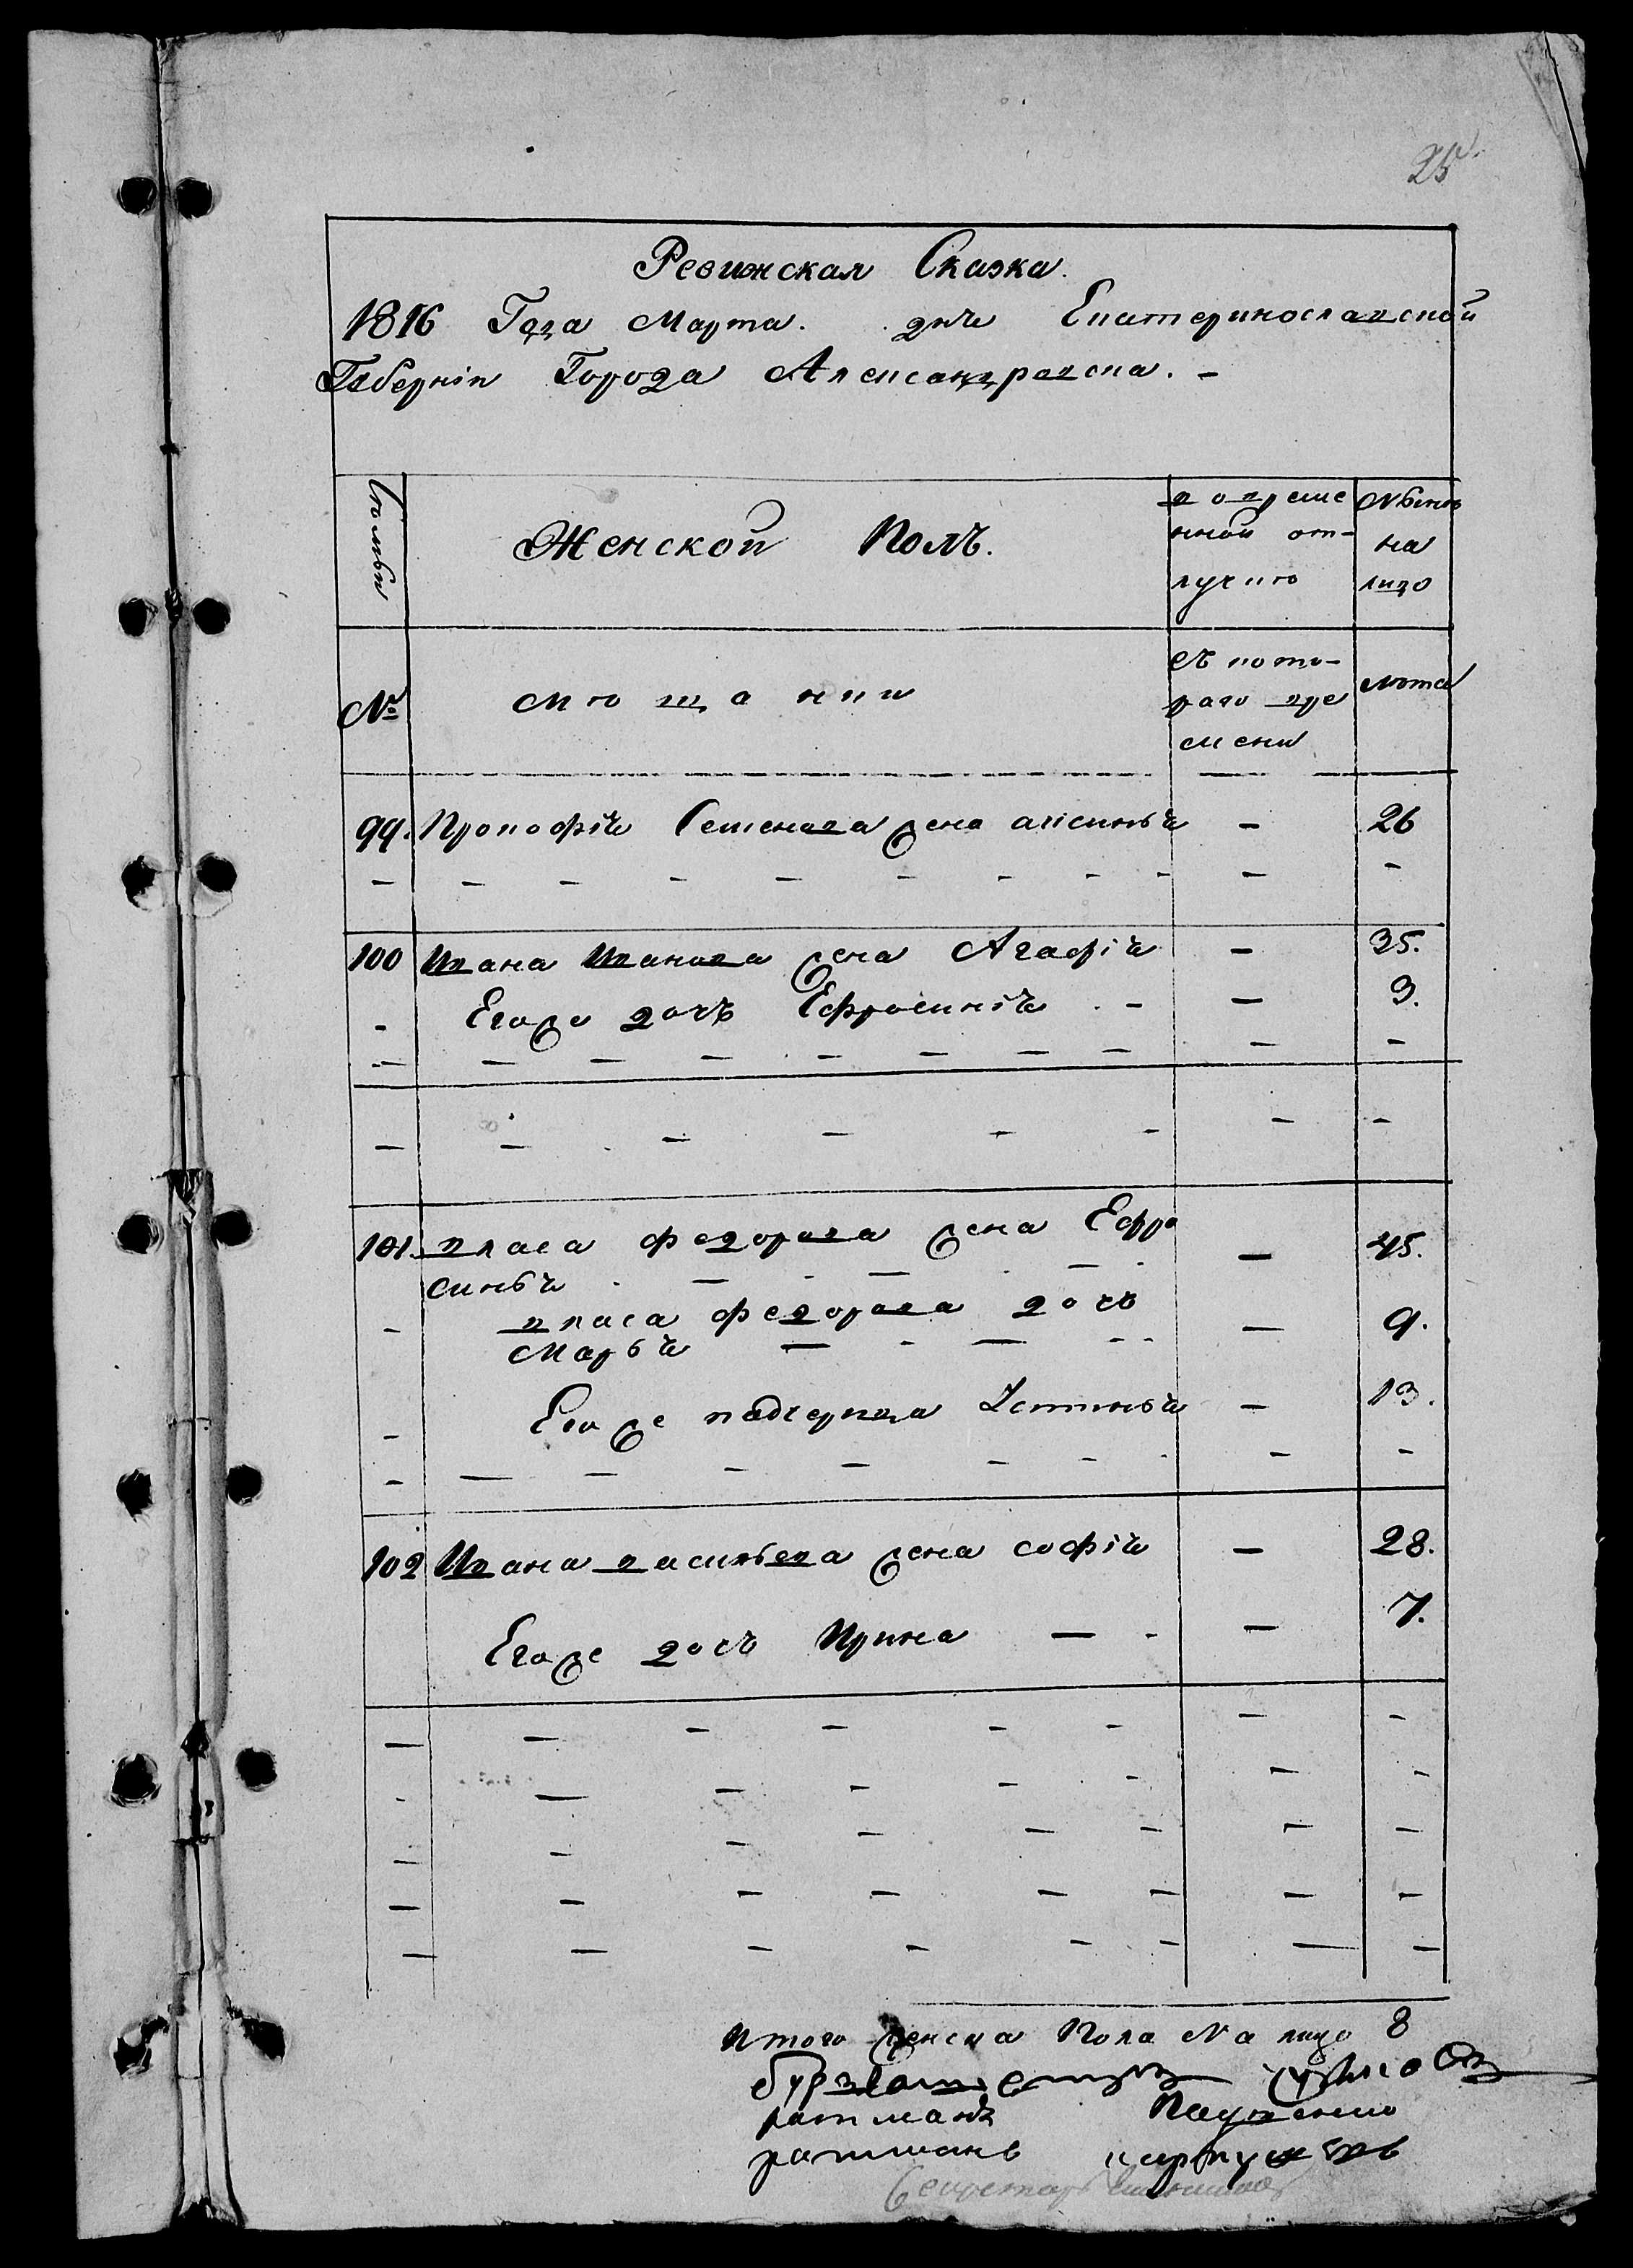 25
Ревижская Сказка.
1816 Года Марта. днѣ Екатеринославской
Губерніи Города Александравска. -
Семьи
Женской Полъ.
во време
нной от-
лучкю
Ныне
на
лицо
№
мющанки
съ кото-
раго вре
мени
лѣта
99. Прокофія Семенава жена аксинья - 26
100 Ивана Иванава жена Агафія - 35.
- Егоже дочь Ефросинія - - 3.
101. власа федорава жена Ефро - 45.
синья
- власа федорава дочь - 9.
Марья
- Егоже падчерица Устинья - 13.
102 Ивана васильева жена софія - 28.
Егоже дочь Ирина - - 7.
Итого женска Пола На лицо 8
ратманъ
ратманъ
Секретарь